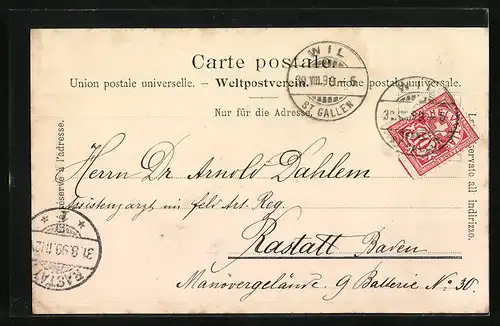 Carte postale.
Union postale universelle. – Weltpostverein. – Unione postale universale.
Nur für die Adresse.
réservé à l'adresse.
Lato riservato all indirizzo.
WIL
30.VIII.98. 6
ST. GALLEN
WIL
30.VIII.98
Herrn Dr Arnold Dahlem
Assistenzarzt im Feld Art. Reg.
Rastatt Baden
Manövergelände. 9 Batterie No 30.
RASTATT
31.8.98.11-12